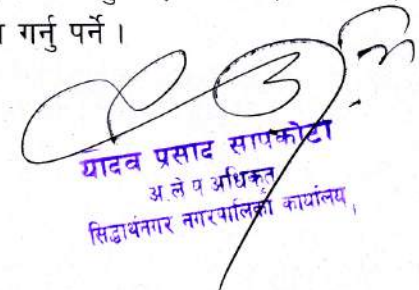 गर्नु पर्ने ।
यादव प्रसाद सापकोटा
अ.ले प अधिकृत
सिद्धार्थनगर नगरपालिका कार्यालय